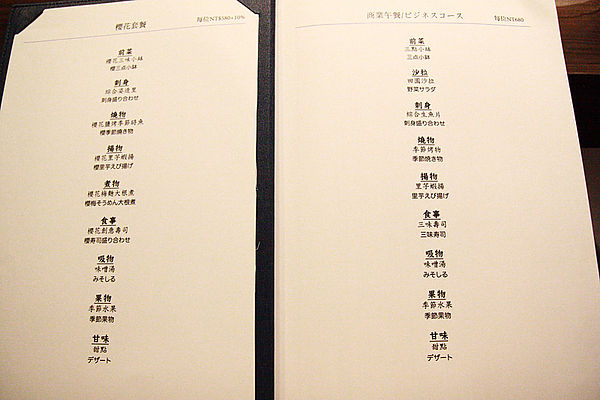 櫻花套餐 每位NT$580+10%
前菜
櫻花三味小鉢
櫻三点小鉢
刺身
綜合姿造里
刺身盛り合わせ
燒物
櫻花鹽烤季節時魚
櫻季節焼き物
揚物
櫻花里芋蝦揚
櫻里芋えび揚げ
煮物
櫻花梅麵大根煮
櫻梅そうめん大根煮
食事
櫻花創意壽司
櫻寿司盛り合わせ
吸物
味噌湯
みそしる
果物
季節水果
季節果物
甘味
甜點
デザート
商業午餐/ビジネスコース 每位NT680
前菜
三點小鉢
三点小鉢
沙拉
田園沙拉
野菜サラダ
刺身
綜合生魚片
刺身盛り合わせ
燒物
季節烤物
季節焼き物
揚物
里芋蝦揚
里芋えび揚げ
食事
三味壽司
三味寿司
吸物
味噌湯
みそしる
果物
季節水果
季節果物
甘味
甜點
デザート